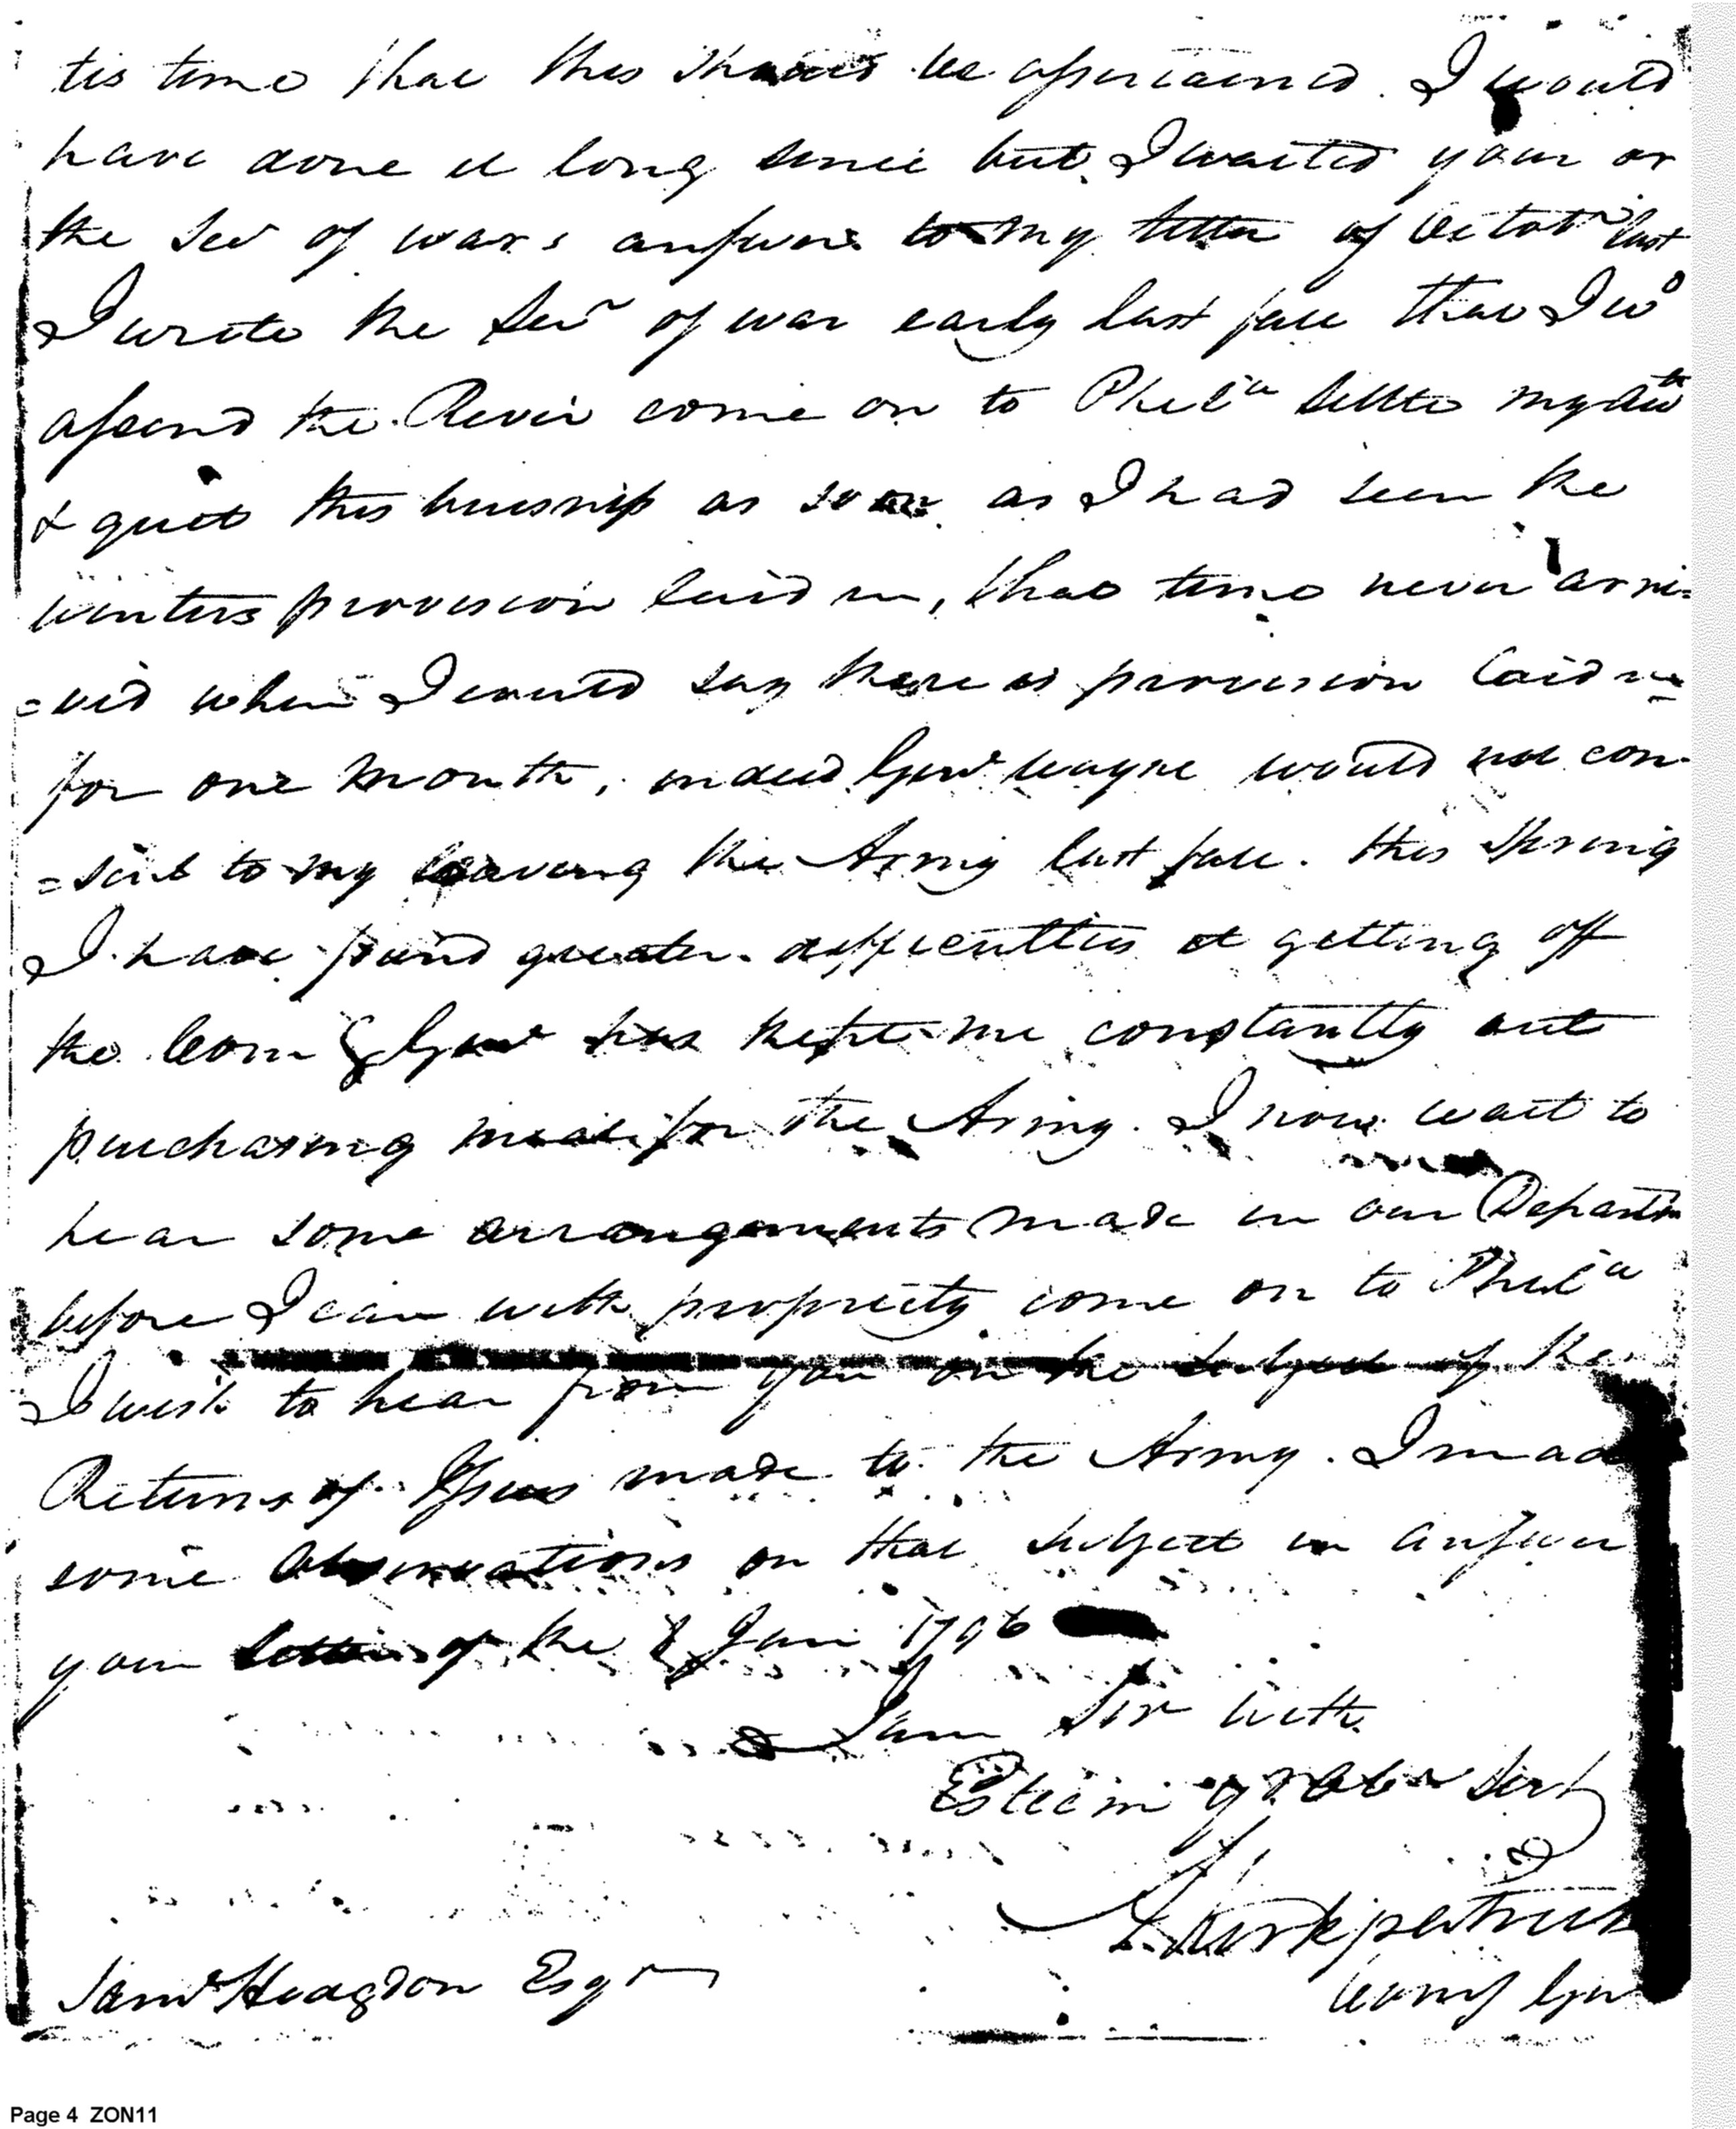 tis time that this should be assertained. I would
have done it long since but I waited your or
the Secy of wars answer to my letter of Octobr last
I wrote the Secy of war early last fall that I wd
assend the River come on to Phila settle my
& quit this buisniss as soon as I had seen the
winters provision laid in, that time never arri-
=ved when I could say there is provision laid in
for one month, indeed Genl wayne would not con-
=sent to my leaving the Army last fall. this Spring
I have found greater difficulties at getting off
the Com Genl has kept me constantly out
purchasing meat for the Army. I now wait to
hear some arrangements made in our Departm
before I can with propriety come on to Phila
I wish to hear from you on the subject of the
Returns of Issues made to the Army. I made
some observations on that subject in answer
your letter of the 8 Jan 1796
I am Sir with
Esteem yr Obt Sert
A. Kirkpatrick
Saml Hodgdon Esqr
Comy Genl
Page 4 ZON11